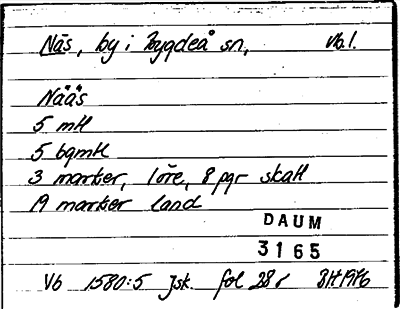 Näs, by i Bygdeå sn, Vb.l.
Nääs
5 mtl
5 bgmtl
3 marker, 1 öre, 8 pgr skatt
19 marker land
DAUM
3165
Vb 1580:5 Jsk. fol 28 r BH 1976